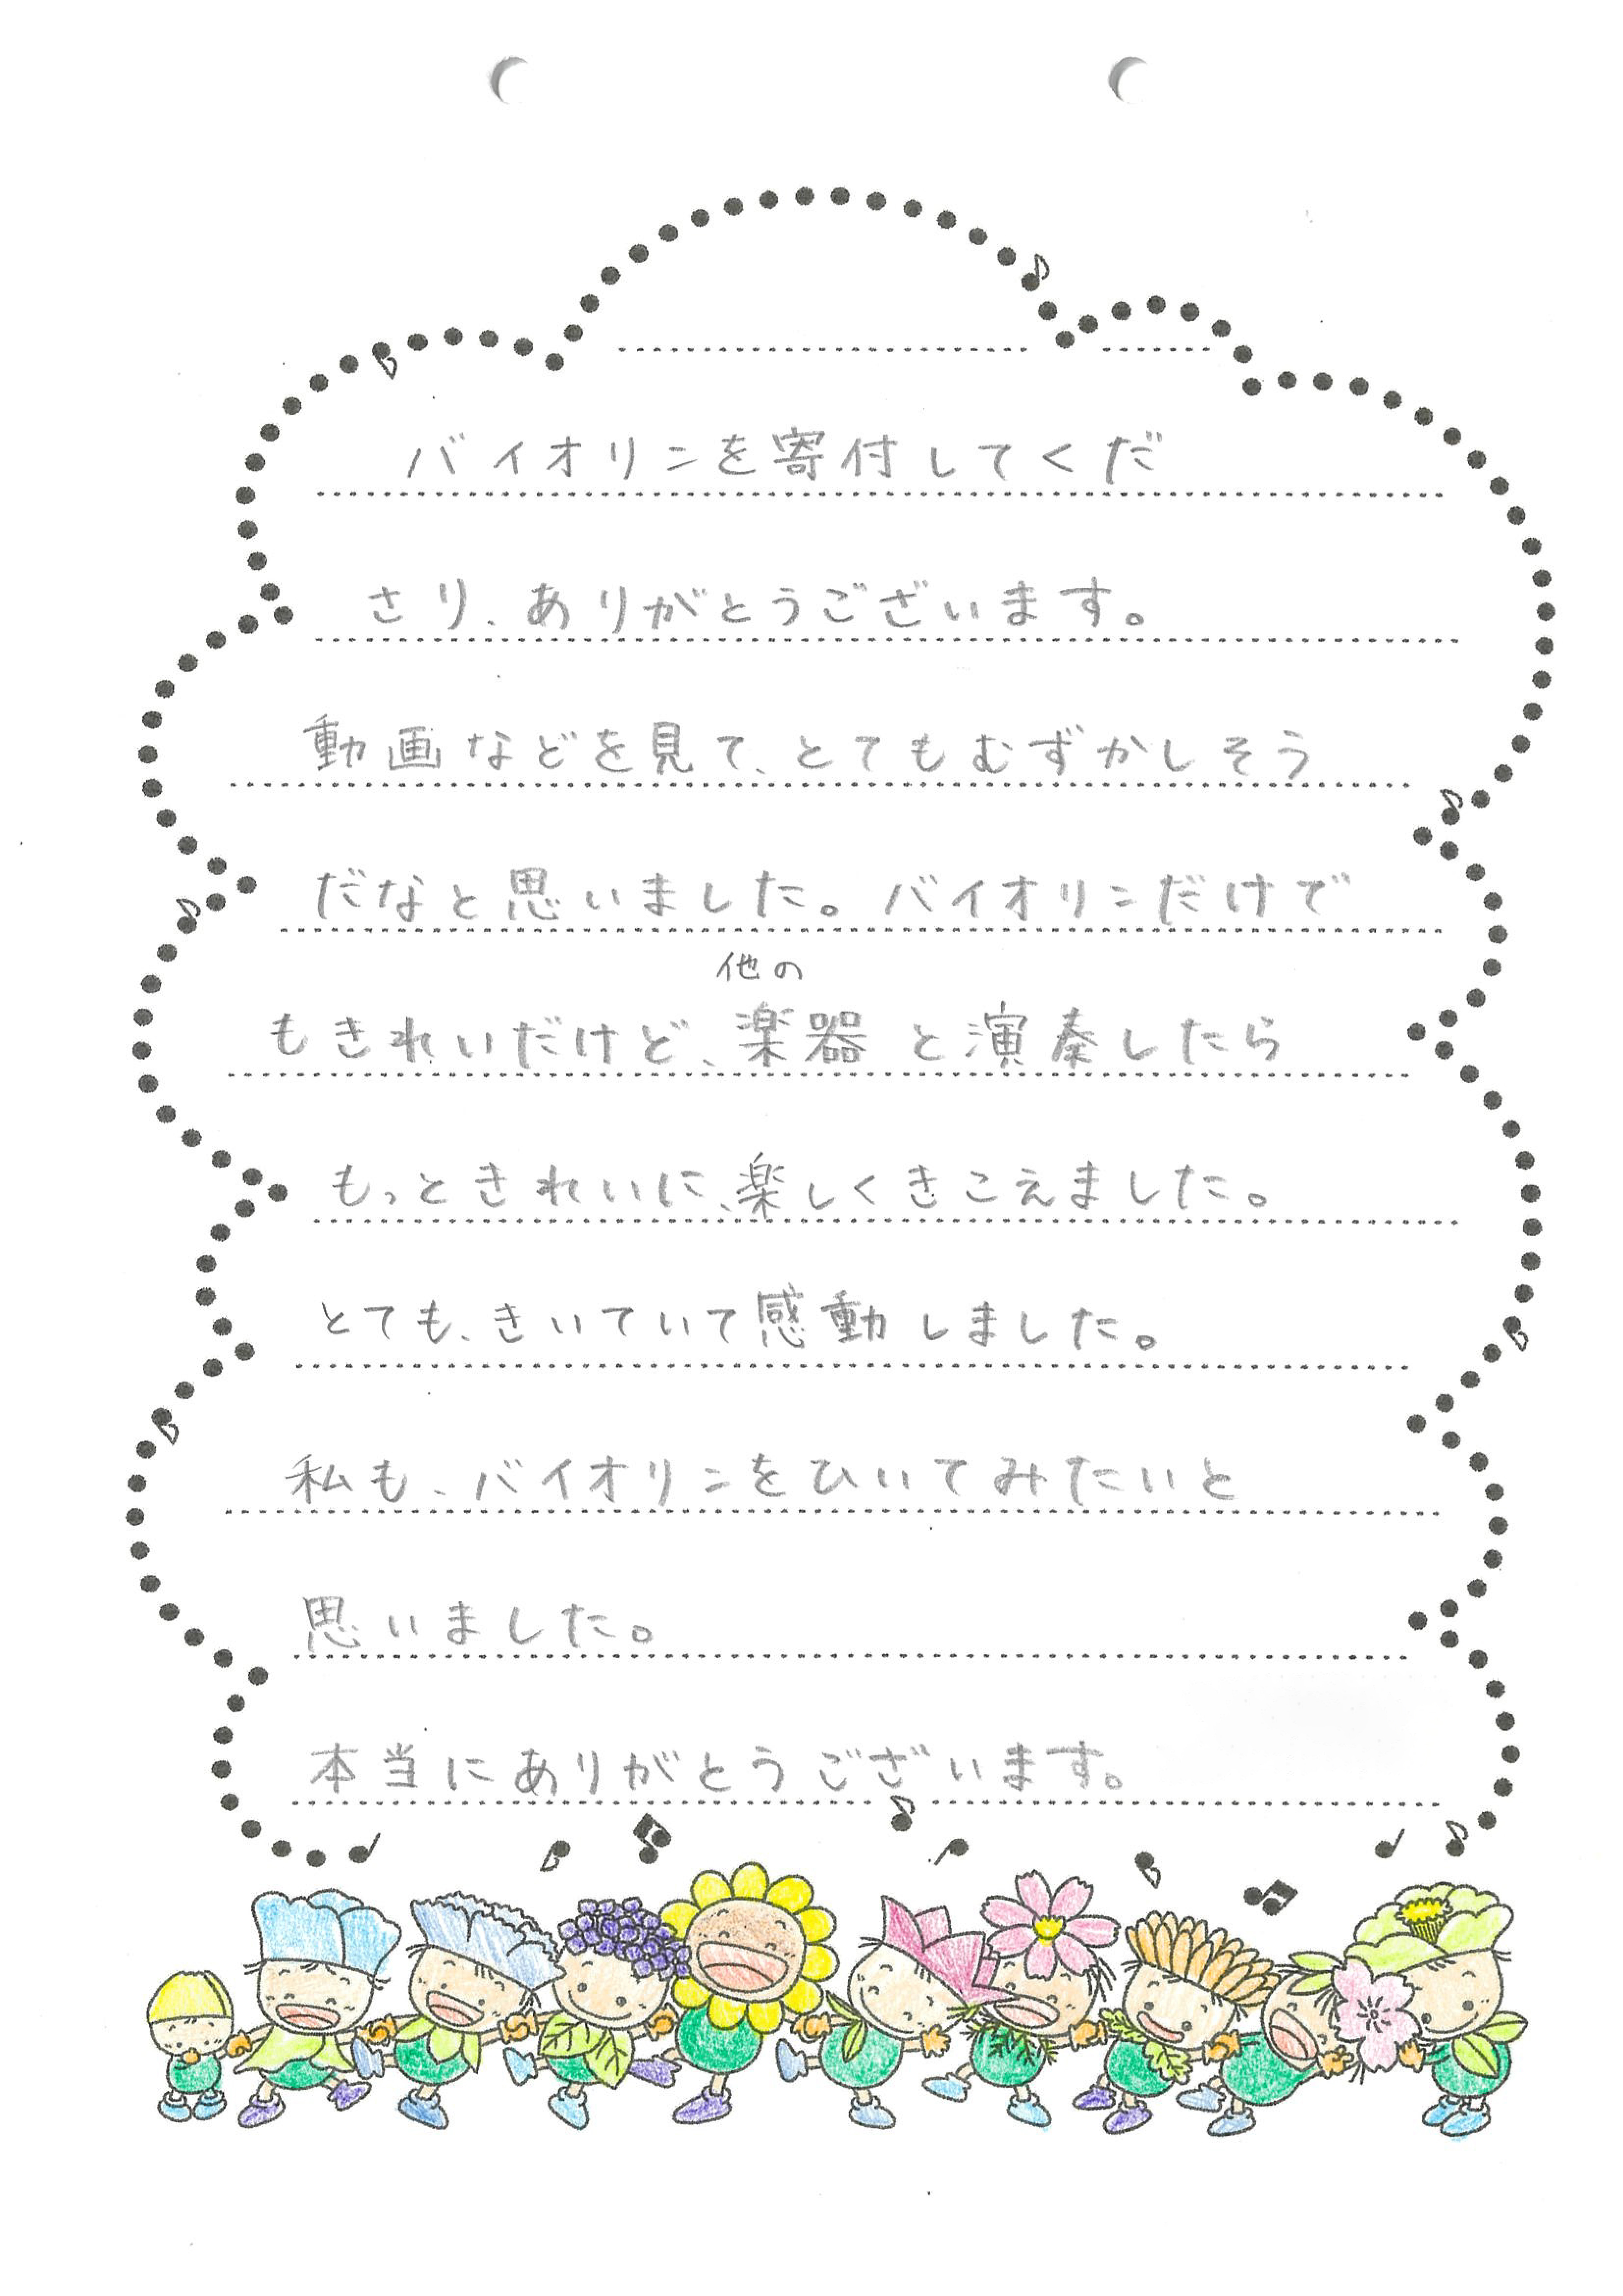 バイオリンを寄付してくだ
さり、ありがとうございます。
動画などを見て、とてもむずかしそう
だなと思いました。バイオリンだけで
他の
もきれいだけど、楽器と演奏したら
もっときれいに、楽しくきこえました。
とても、きいていて感動しました。
私も、バイオリンをひいてみたいと
思いました。
本当にありがとうございます。